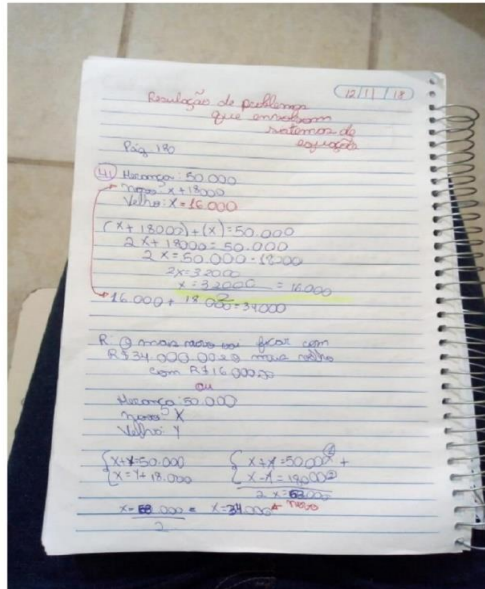 12/11/18
Resolução de problemas
que envolvem
sistemas de
equação
Pág. 180
41 Herança: 50.000
Novo: x + 18000
Velho: x = 16.000
(x + 18000) + (x) = 50.000
2x + 18000 = 50.000
2x = 50.000 - 18000
2x = 32000
x = 32000 = 16.000
2
16.000 + 18.000 = 34000
R. O mais novo vai ficar com
R$34.000,00 e o mais velho
com R$16.000,00
ou
Herança: 50.000
Novo: X
Velho: Y
x+y=50.000
x=y+18.000
x+y=50.000 +
x-y=18.000
2x=68.000
x=68.000 = x=34.000 novo
2